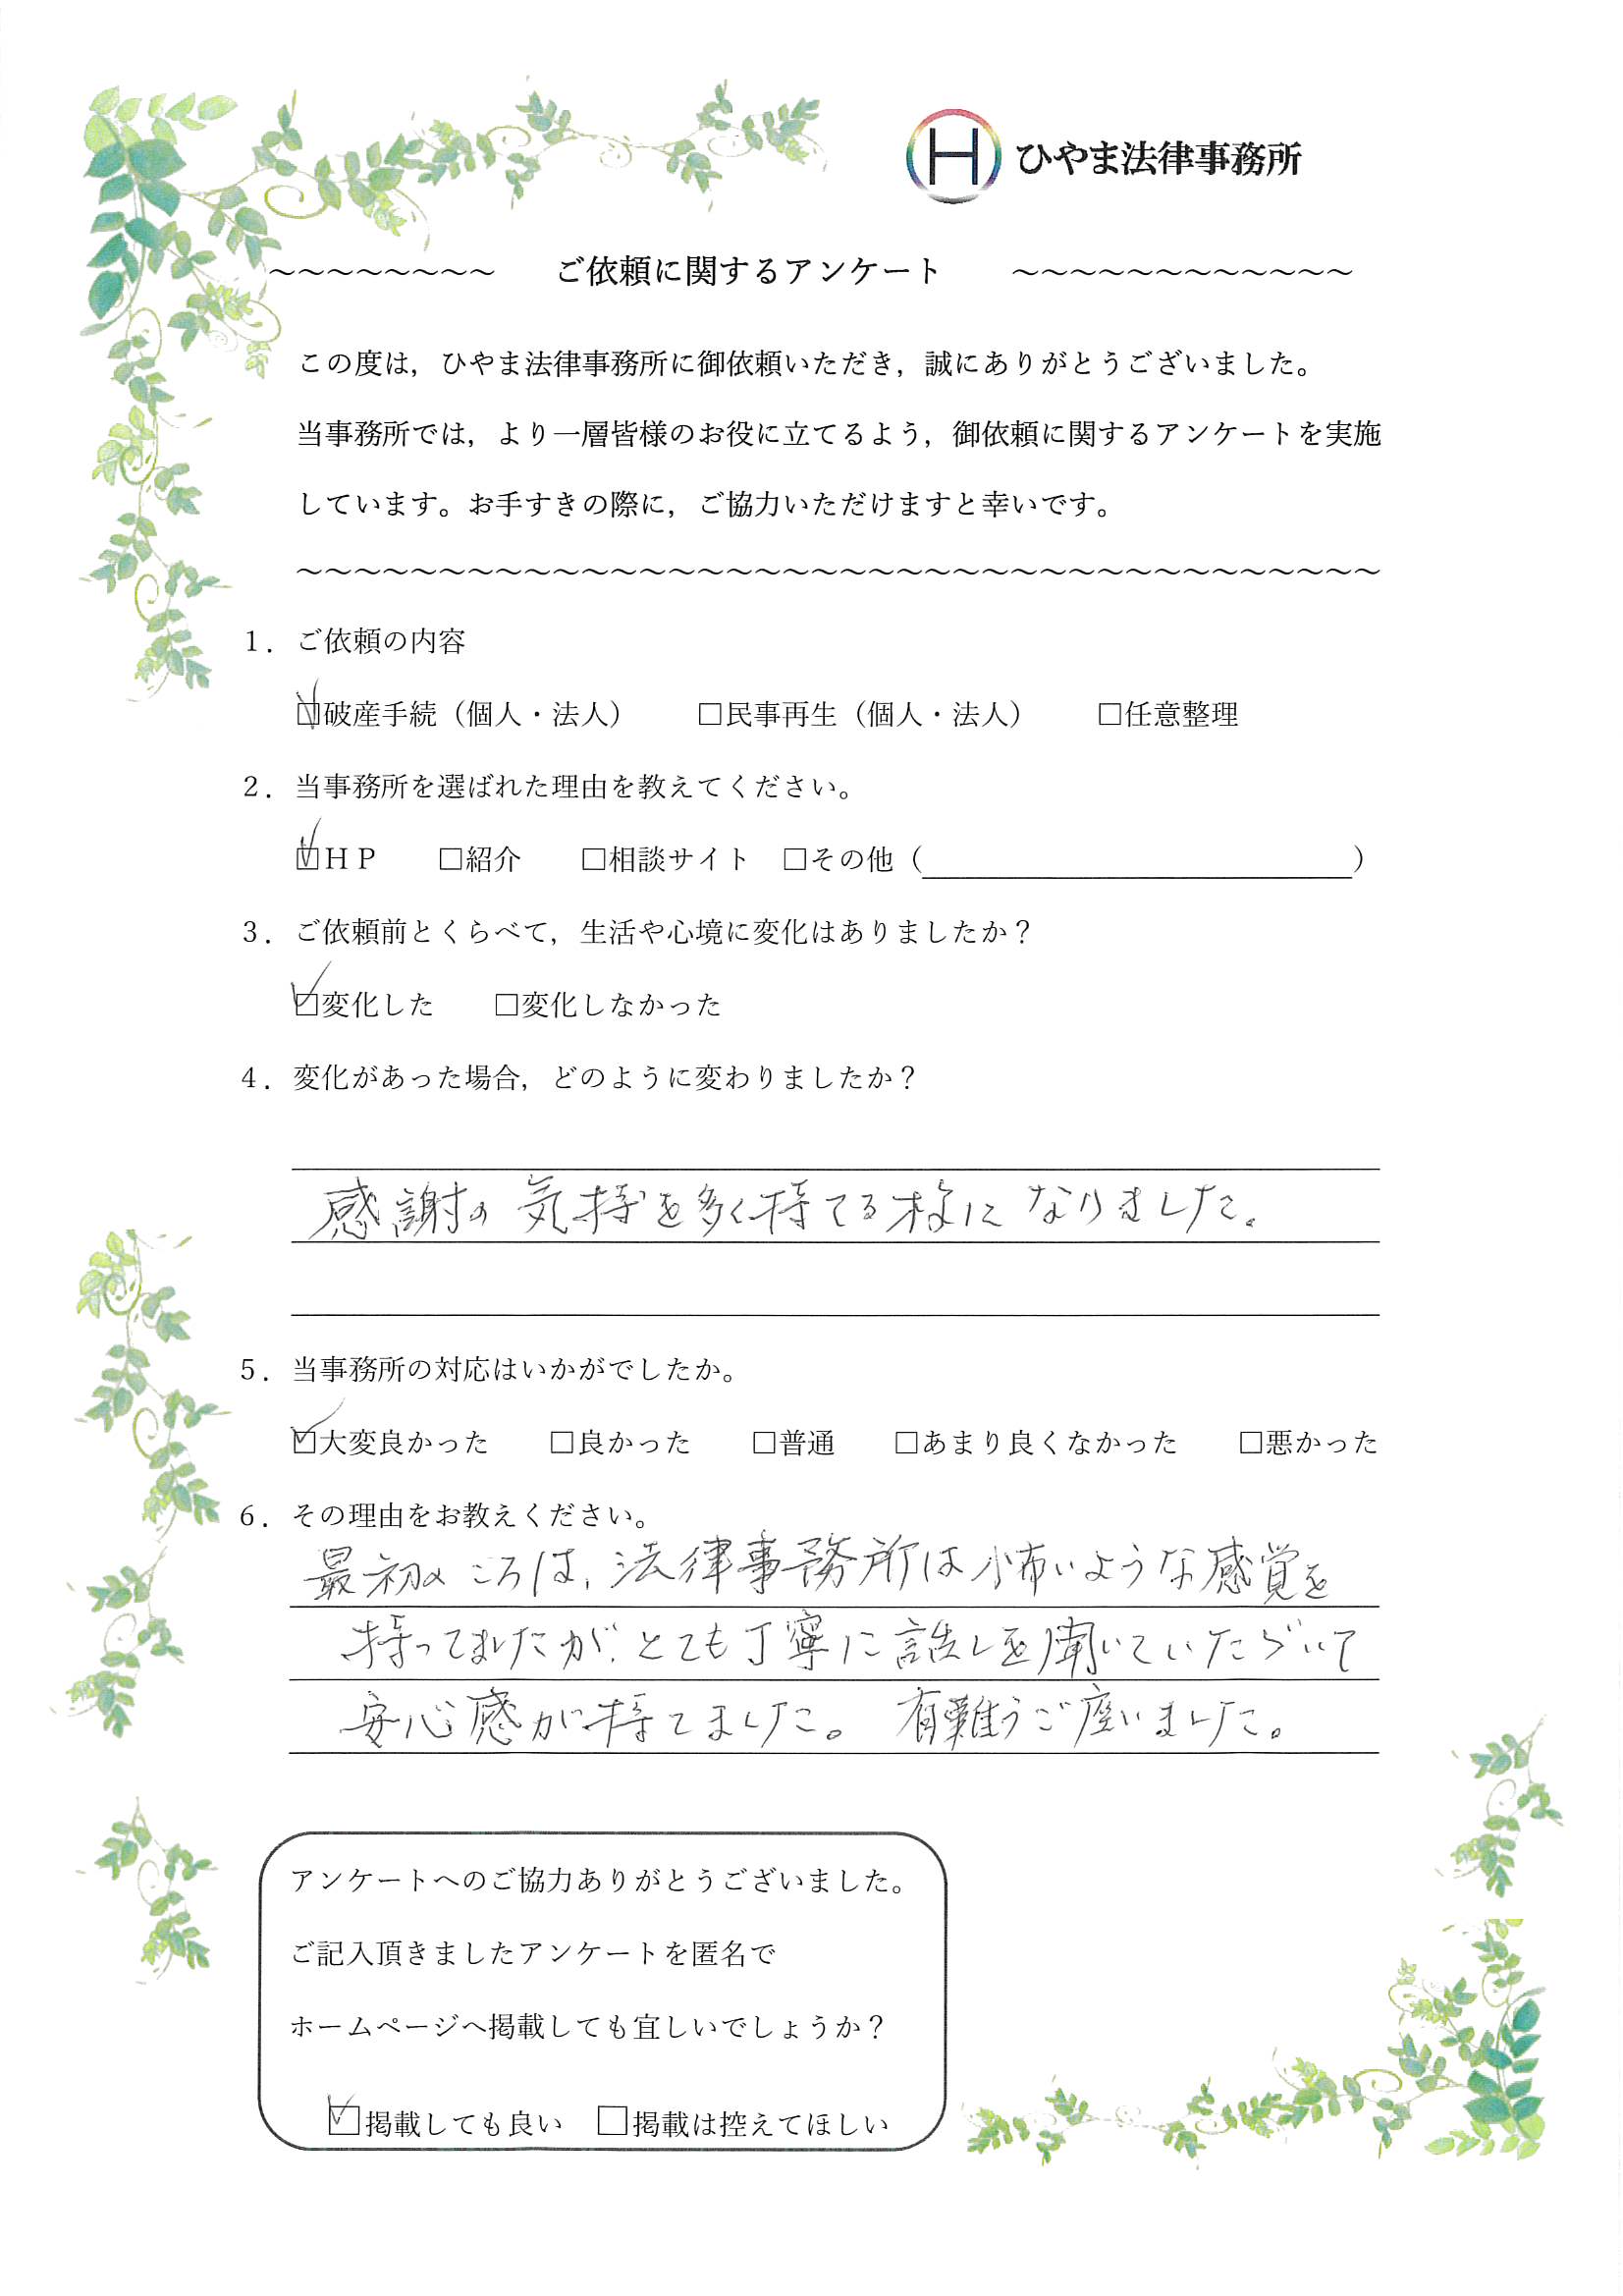 H ひやま法律事務所
～～～～～～～～ ご依頼に関するアンケート ～～～～～～～～～～～～
この度は，ひやま法律事務所に御依頼いただき，誠にありがとうございました。
当事務所では，より一層皆様のお役に立てるよう，御依頼に関するアンケートを実施
しています。お手すきの際に，ご協力いただけますと幸いです。
～～～～～～～～～～～～～～～～～～～～～～～～～～～～～～～～～～～～～～
１．ご依頼の内容
☑破産手続（個人・法人） □民事再生（個人・法人） □任意整理
２．当事務所を選ばれた理由を教えてください。
☑ＨＰ □紹介 □相談サイト □その他（ ）
３．ご依頼前とくらべて，生活や心境に変化はありましたか？
☑変化した □変化しなかった
４．変化があった場合，どのように変わりましたか？
感謝の気持を多く持てる様になりました。
５．当事務所の対応はいかがでしたか。
☑大変良かった □良かった □普通 □あまり良くなかった □悪かった
６．その理由をお教えください。
最初のころは、法律事務所は怖いような感覚を
持ってましたが、とても丁寧に話しを聞いていただいて
安心感が持てました。 有難うご座いました。
アンケートへのご協力ありがとうございました。
ご記入頂きましたアンケートを匿名で
ホームページへ掲載しても宜しいでしょうか？
☑掲載しても良い □掲載は控えてほしい